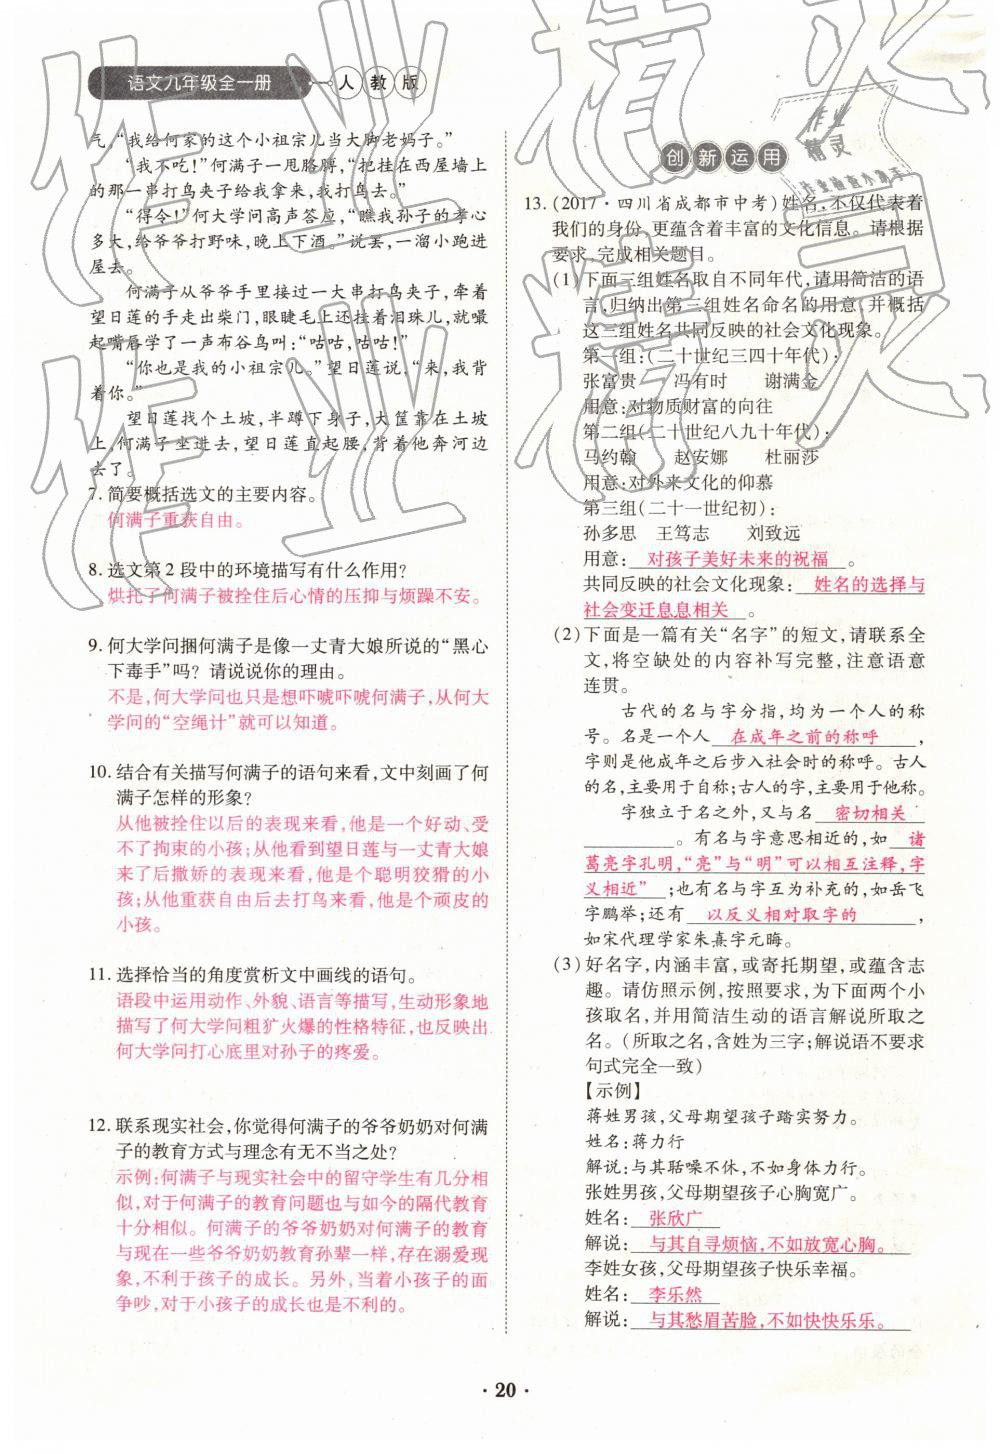 语文九年级全一册
人教版
气。“我给何家的这个小祖宗儿当大脚老妈子。”
“我不吃!”何满子一甩胳膊,“把挂在西屋墙上
的那一串打鸟夹子给我拿来,我打鸟去。”
“得令!”何大学问高声答应,“瞧我孙子的孝心
多大,给爷爷打野味,晚上下酒。”说罢,一溜小跑进
屋去。
何满子从爷爷手里接过一大串打鸟夹子,牵着
望日莲的手走出柴门,眼睫毛上还挂着泪珠儿,就嘬
起嘴唇学了一声布谷鸟叫:“咕咕,咕咕!”
“你也是我的小祖宗儿。”望日莲说,“来,我背
着你。”
望日莲找个土坡,半蹲下身子,大筐靠在土坡
上,何满子坐进去,望日莲直起腰,背着他奔河边
去了。
7. 简要概括选文的主要内容。
何满子重获自由。
8. 选文第2段中的环境描写有什么作用?
烘托了何满子被拴住后心情的压抑与烦躁不安。
9. 何大学问捆何满子是像一丈青大娘所说的“黑心
下毒手”吗? 请说说你的理由。
不是,何大学问也只是想吓唬吓唬何满子,从何大
学问的“空绳计”就可以知道。
10. 结合有关描写何满子的语句来看,文中刻画了何
满子怎样的形象?
从他被拴住以后的表现来看,他是一个好动、受
不了拘束的小孩;从他看到望日莲与一丈青大娘
来了后撒娇的表现来看,他是个聪明狡猾的小
孩;从他重获自由后去打鸟来看,他是个顽皮的
小孩。
11. 选择恰当的角度赏析文中画线的语句。
语段中运用动作、外貌、语言等描写,生动形象地
描写了何大学问粗犷火爆的性格特征,也反映出
何大学问打心底里对孙子的疼爱。
12. 联系现实社会,你觉得何满子的爷爷奶奶对何满
子的教育方式与理念有无不当之处?
示例:何满子与现实社会中的留守学生有几分相
似,对于何满子的教育问题也与如今的隔代教育
十分相似。何满子的爷爷奶奶对何满子的教育
与现在一些爷爷奶奶教育孙辈一样,存在溺爱现
象,不利于孩子的成长。另外,当着小孩子的面
争吵,对于小孩子的成长也是不利的。
创新运用
13. (2017·四川省成都市中考)姓名,不仅代表着
我们的身份,更蕴含着丰富的文化信息。请根据
要求,完成相关题目。
(1)下面三组姓名取自不同年代,请用简洁的语
言,归纳出第三组姓名命名的用意,并概括
这三组姓名共同反映的社会文化现象。
第一组:(二十世纪三四十年代):
张富贵 冯有时 谢满金
用意:对物质财富的向往
第二组(二十世纪八九十年代):
马约翰 赵安娜 杜丽莎
用意:对外来文化的仰慕
第三组(二十一世纪初):
孙多思 王笃志 刘致远
用意: 对孩子美好未来的祝福 。
共同反映的社会文化现象: 姓名的选择与
社会变迁息息相关 。
(2)下面是一篇有关“名字”的短文,请联系全
文,将空缺处的内容补写完整,注意语意
连贯。
古代的名与字分指,均为一个人的称
号。名是一个人 在成年之前的称呼 ,
字则是他成年之后步入社会时的称呼。古人
的名,主要用于自称;古人的字,主要用于他称。
字独立于名之外,又与名 密切相关
。有名与字意思相近的,如 诸
葛亮字孔明,“亮”与“明”可以相互注释,字
义相近” ;也有名与字互为补充的,如岳飞
字鹏举;还有 以反义相对取字的 ,
如宋代理学家朱熹字元晦。
(3)好名字,内涵丰富,或寄托期望,或蕴含志
趣。请仿照示例,按照要求,为下面两个小
孩取名,并用简洁生动的语言解说所取之
名。(所取之名,含姓为三字;解说语不要求
句式完全一致)
【示例】
蒋姓男孩,父母期望孩子踏实努力。
姓名:蒋力行
解说:与其聒噪不休,不如身体力行。
张姓男孩,父母期望孩子心胸宽广。
姓名: 张欣广
解说: 与其自寻烦恼,不如放宽心胸。
李姓女孩,父母期望孩子快乐幸福。
姓名: 李乐然
解说: 与其愁眉苦脸,不如快快乐乐。
· 20 ·
作业精灵
作业精灵
作业
精灵
作业检查小助手